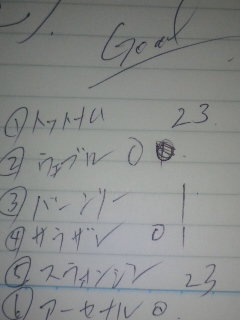 Goal
① トットナム 23.
② ウェブル 0
③ バーンリー 1
④ サウサン 0 1
⑤ スウォンジー 23
⑥ アーセナル 0